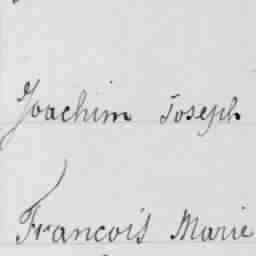 Joachim Joseph
Francois Marie